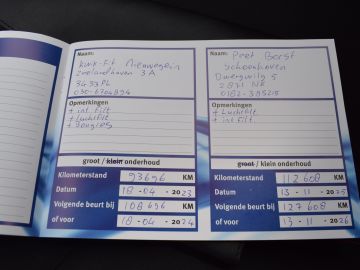 Naam:
Kwik-Fit Nieuwegein
Zeelandhaven 3A
3433PL
030-6704894
Opmerkingen
+ int. Filt
+ Luchtfilt
groot / klein onderhoud
Kilometerstand 93696 KM
Datum 18-04-2023
Volgende beurt bij 108696 KM
of voor 18-04-2024
Naam:
Piet Borst
Schoonhoven
2871 NE
0182-385215
Opmerkingen
+ Luchtfilt
+ int. Filt
groot / klein onderhoud
Kilometerstand 112608 KM
Datum 13-11-2025
Volgende beurt bij 127608 KM
of voor 13-11-2026